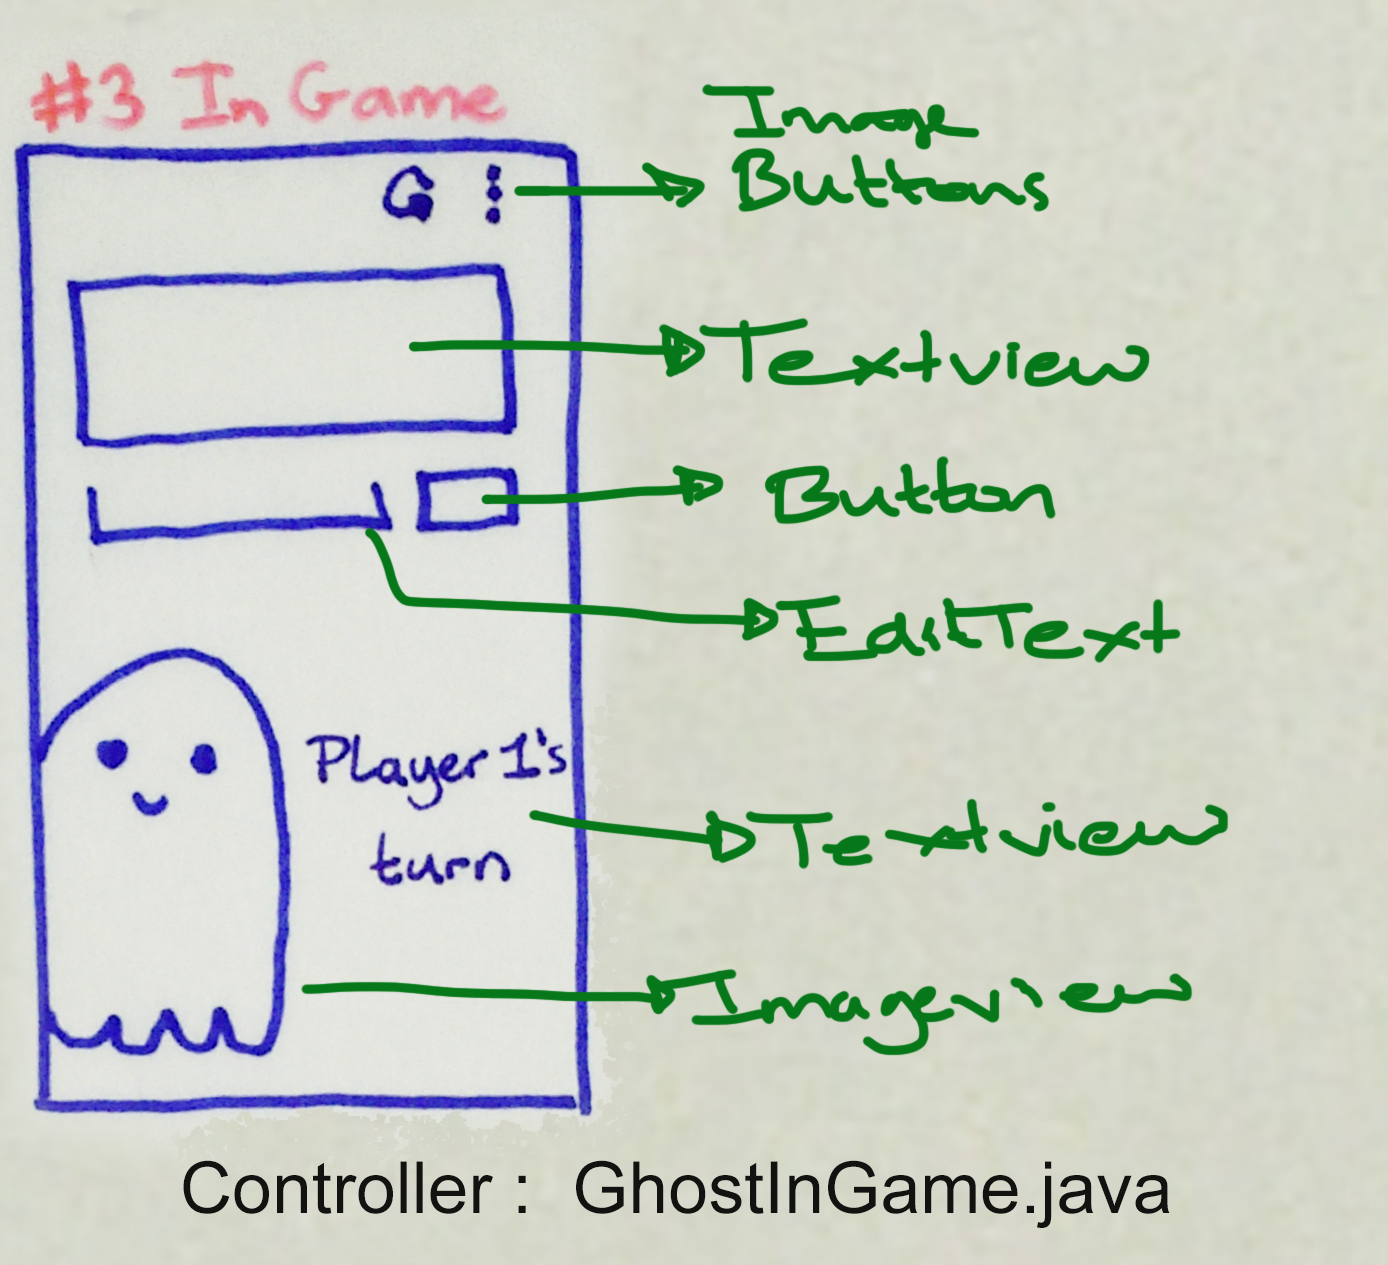 #3 In Game
Image
Buttons
Textview
Button
EditText
Player 1's
turn
Textview
Imageview
Controller : GhostInGame.java